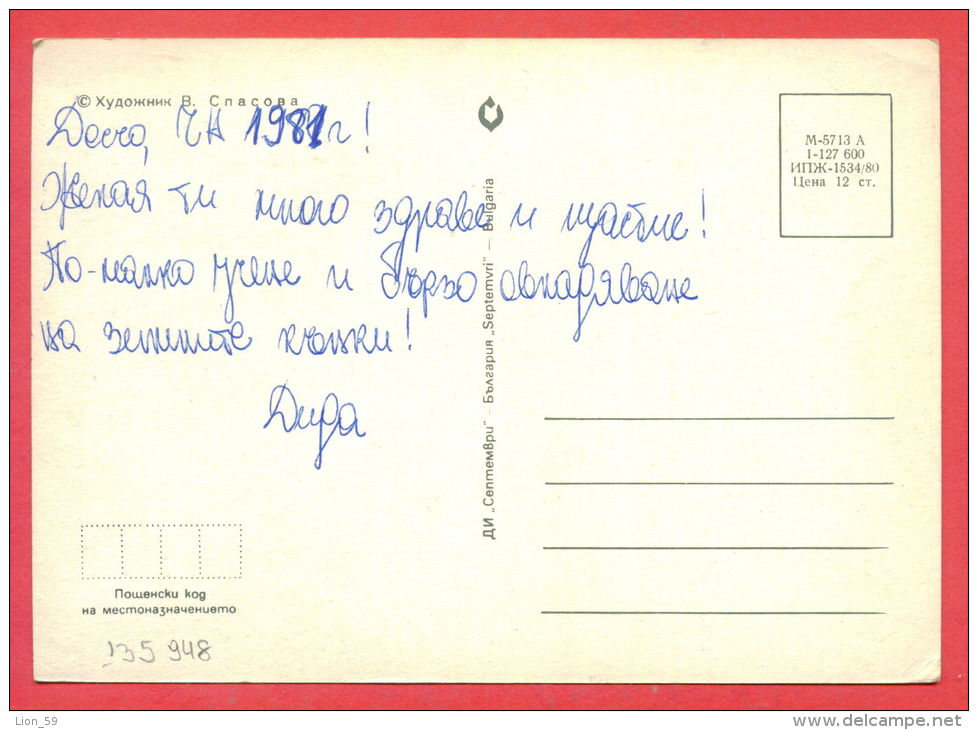 © Художник В. Спасова
Дечо, ЧН 1981г!
Желая ти много здраве и щастие!
По-малко учене и бързо овладяване
на зимните кънки!
Дида
ДИ „Септември" – България „Septemvri" – Bulgaria
М-5713 А
I-127 600
ИПЖ-1534/80
Цена 12 ст.
Пощенски код
на местоназначението
135 948
Lion_59
www.delcampe.net